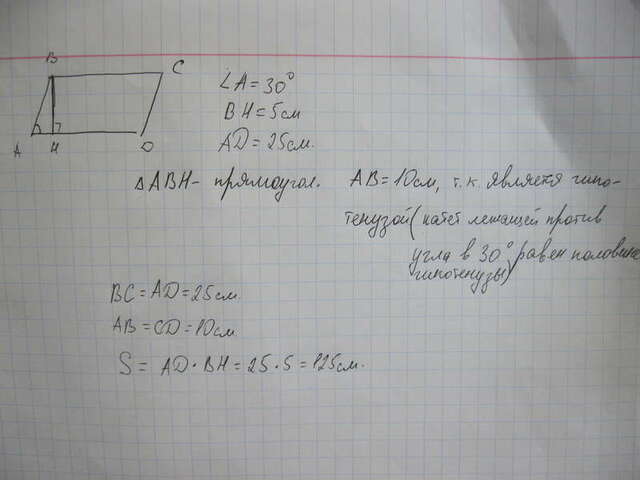 B
C
A
H
D
∠A = 30°
BH = 5см
AD = 25см.
△ABH - прямоугол. AB = 10см, т.к. является гипо-
тенузой (катет лежащей против
угла в 30°, равен половине
гипотенузы)
BC = AD = 25см.
AB = CD = 10см
S = AD · BH = 25 · 5 = 125см.